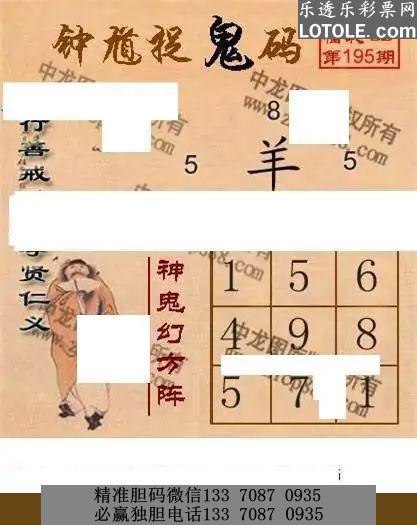 乐透乐彩票网
LOTOLE.COM
钟馗捉鬼码
第195期
行善戒
8
5
羊
5
贤仁义
神鬼幻方阵
1 5 6
4 9 8
5 7 1
精准胆码微信133 7087 0935
必赢独胆电话133 7087 0935